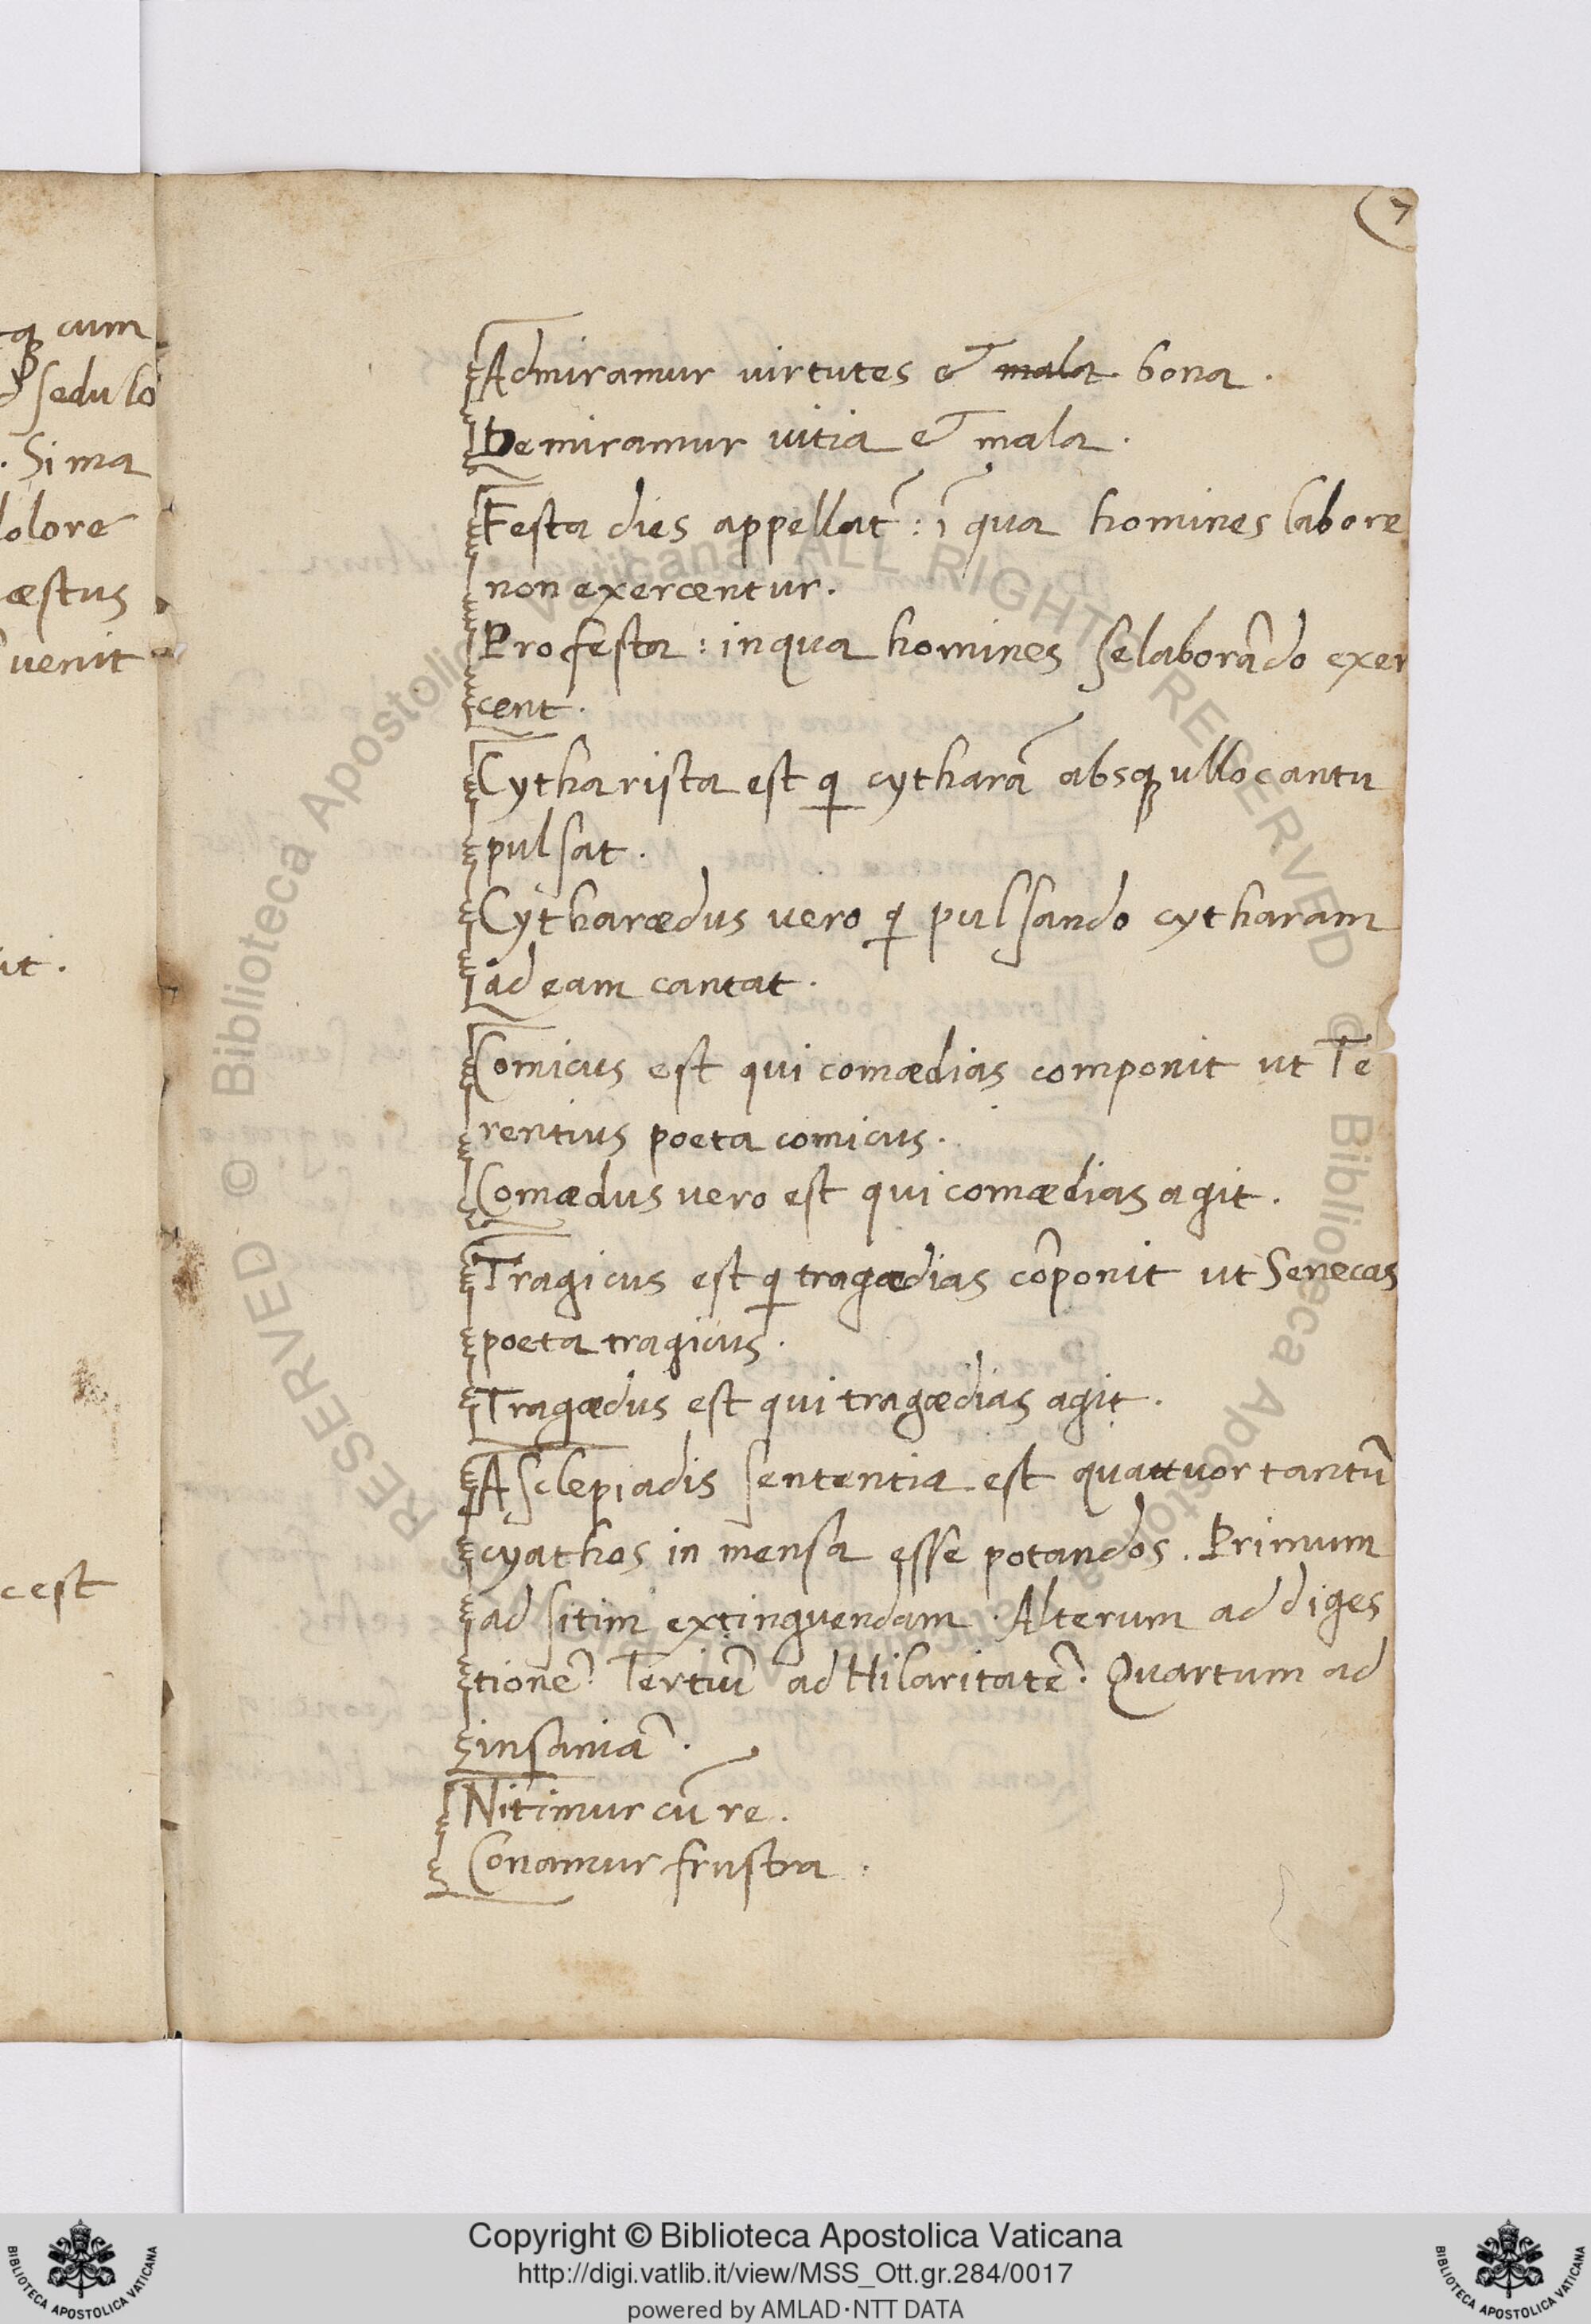 7
q cum
sedulo
. Si ma
dolore
æstus
venit
it.
c est
Admiramur virtutes & mala bona.
Demiramur vitia & mala.
Festa dies appellat̃: ĩ qua homines labore
non exercentur.
Profesta: in qua homines se laborãdo exer
cent.
Cytharista est q̃ cytharã absq ullo cantu
pulsat.
Cytharœdus vero q̃ pulsando cytharam
ad eam cantat.
Comicus est qui comœdias componit ut Te
rentius poeta comicus.
Comœdus vero est qui comœdias agit.
Tragicus est q̃ tragœdias cõponit ut Senecas
poeta tragicus.
Tragœdus est qui tragœdias agit.
Asclepiadis sententia est quattuor tantũ
cyathos in mensa esse potandos. Primum
ad sitim extinguendam. Alterum ad diges
tionẽ. Tertiũ ad Hilaritatẽ. Quartum ad
insaniã.
Nitimur cũ re.
Conamur frustra.
© Biblioteca Apostolica Vaticana ALL RIGHTS RESERVED
© Biblioteca Apostolica
RESERVED
Copyright © Biblioteca Apostolica Vaticana
http://digi.vatlib.it/view/MSS_Ott.gr.284/0017
powered by AMLAD·NTT DATA
BIBLIOTECA APOSTOLICA VATICANA
BIBLIOTECA APOSTOLICA VATICANA